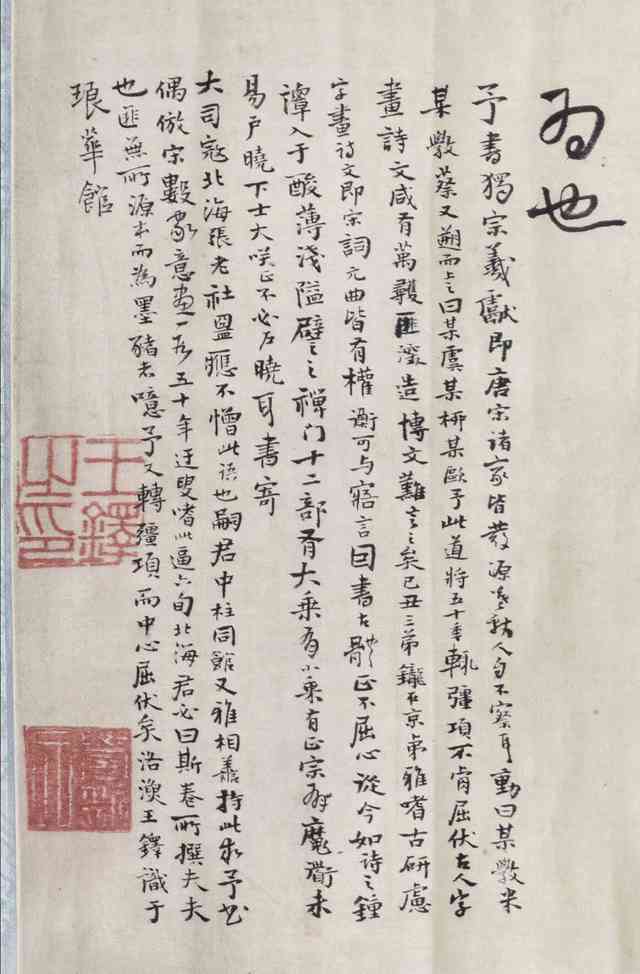 為也
予書獨宗羲獻即唐宋諸家皆發源羲獻人自不察耳動曰某學米
某學蔡又溯而上之曰某虞某柳某歐予此道將五十年輒彊項不肯屈伏古人字
畫詩文咸有萬難匪深造博文難言之矣己丑三弟鑨在京弟雅嗜古研慮
字畫詩文即宋詞元曲皆有權衡可与寤言因書古體正不屈心從今如詩之鍾
譚入于酸薄淺隘譬之禪门十二部有大乘有小乘有正宗有魔衜未
易戶曉下士大咲正不必戶曉耳書寄
大司寇北海張老社盟應不憎此语也嗣君中柱同館又雅相善持此求予书
偶倣宋數家意畫一五十年迂叟嗜此逼六旬北海君必曰斯卷所撰夫夫
也匪無所源本而為墨豬者噫予又轉彊項而中心屈伏矣洛渙王鐸識于
琅華館
王鐸之印